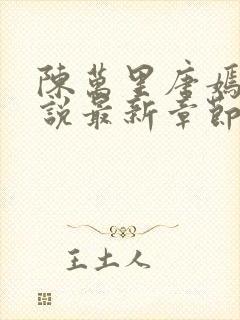 陳萬里唐嫣
說最新章節
王土人